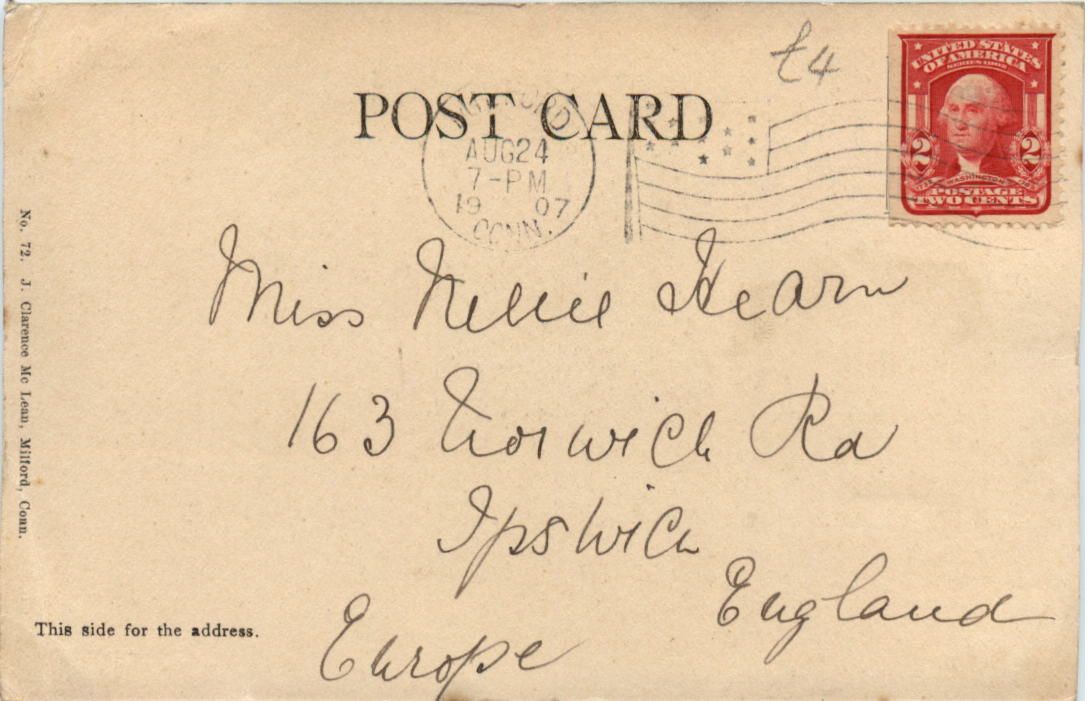 £4
UNITED STATES
OF AMERICA
SERIES 1902
2 2
WASHINGTON
POSTAGE
TWO CENTS
POST CARD
MILFORD
AUG 24
7-PM
19 07
CONN.
Miss Nellie Hearn
163 Norwich Rd
Ipswich
England
Europe
No. 72. J. Clarence Mc Lean, Milford, Conn.
This side for the address.